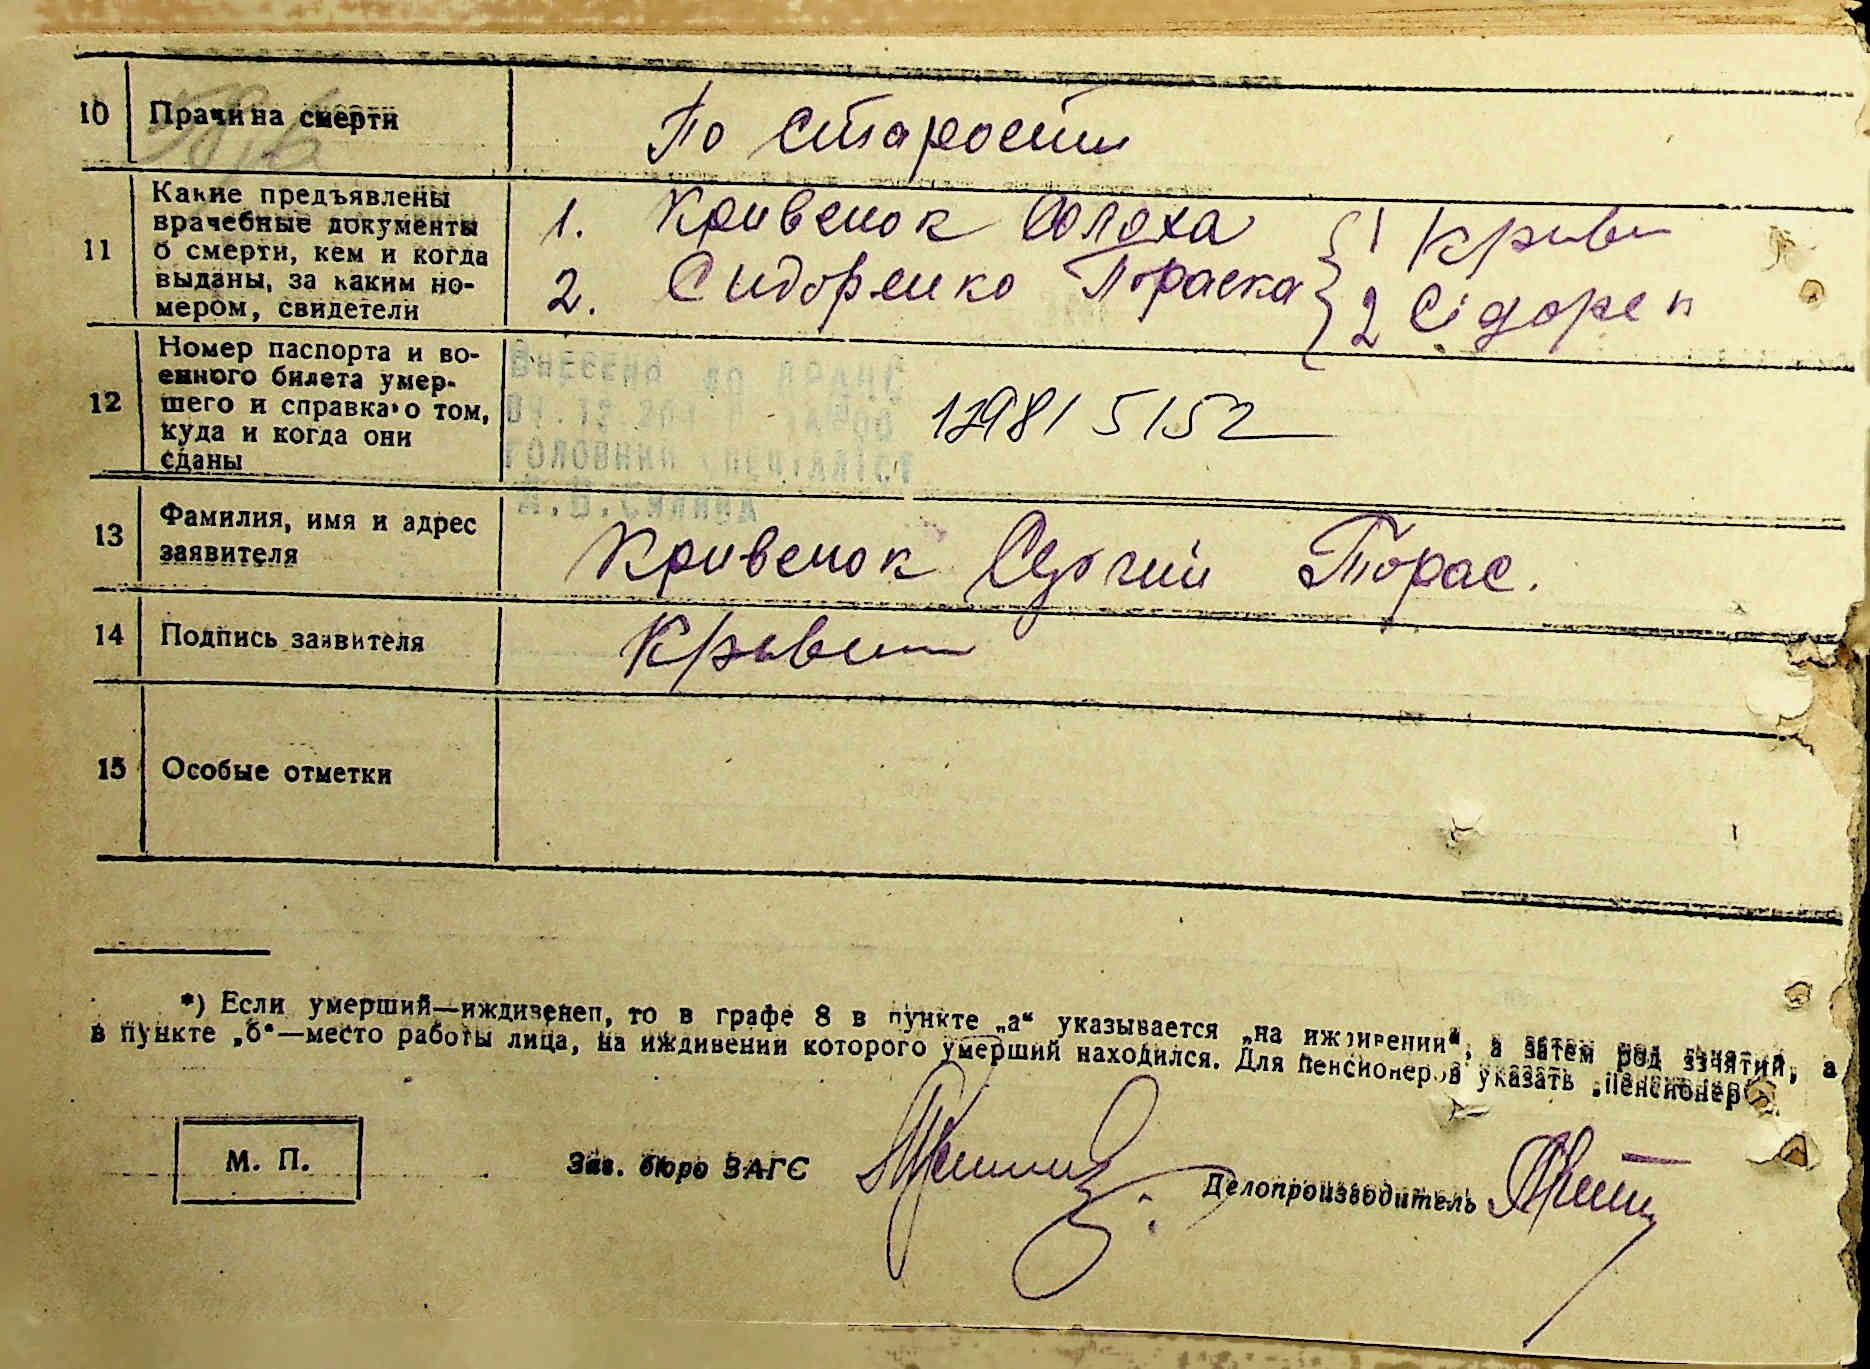 10 Причина смерти По старости
11 Какие предъявлены
врачебные документы
о смерти, кем и когда
выданы, за каким но-
мером, свидетели
1. Кривенок Солоха 1 Криве
2. Сидоренко Пораска 2 Сідорен
12 Номер паспорта и во-
енного билета умер-
шего и справка о том,
куда и когда они
сданы
Внесено до ДРАЦС
головний спеціаліст
5152
13 Фамилия, имя и адрес
заявителя
Кривенок Сергий Торас.
14 Подпись заявителя Кривен
15 Особые отметки
*) Если умерший—иждивенец, то в графе 8 в пункте „а“ указывается „на иждивении“, а затем род занятий, а
в пункте „б“—место работы лица, на иждивении которого умерший находился. Для пенсионеров указать „пенсионер“
М. П.
Зав. бюро ЗАГС
Делопроизводитель